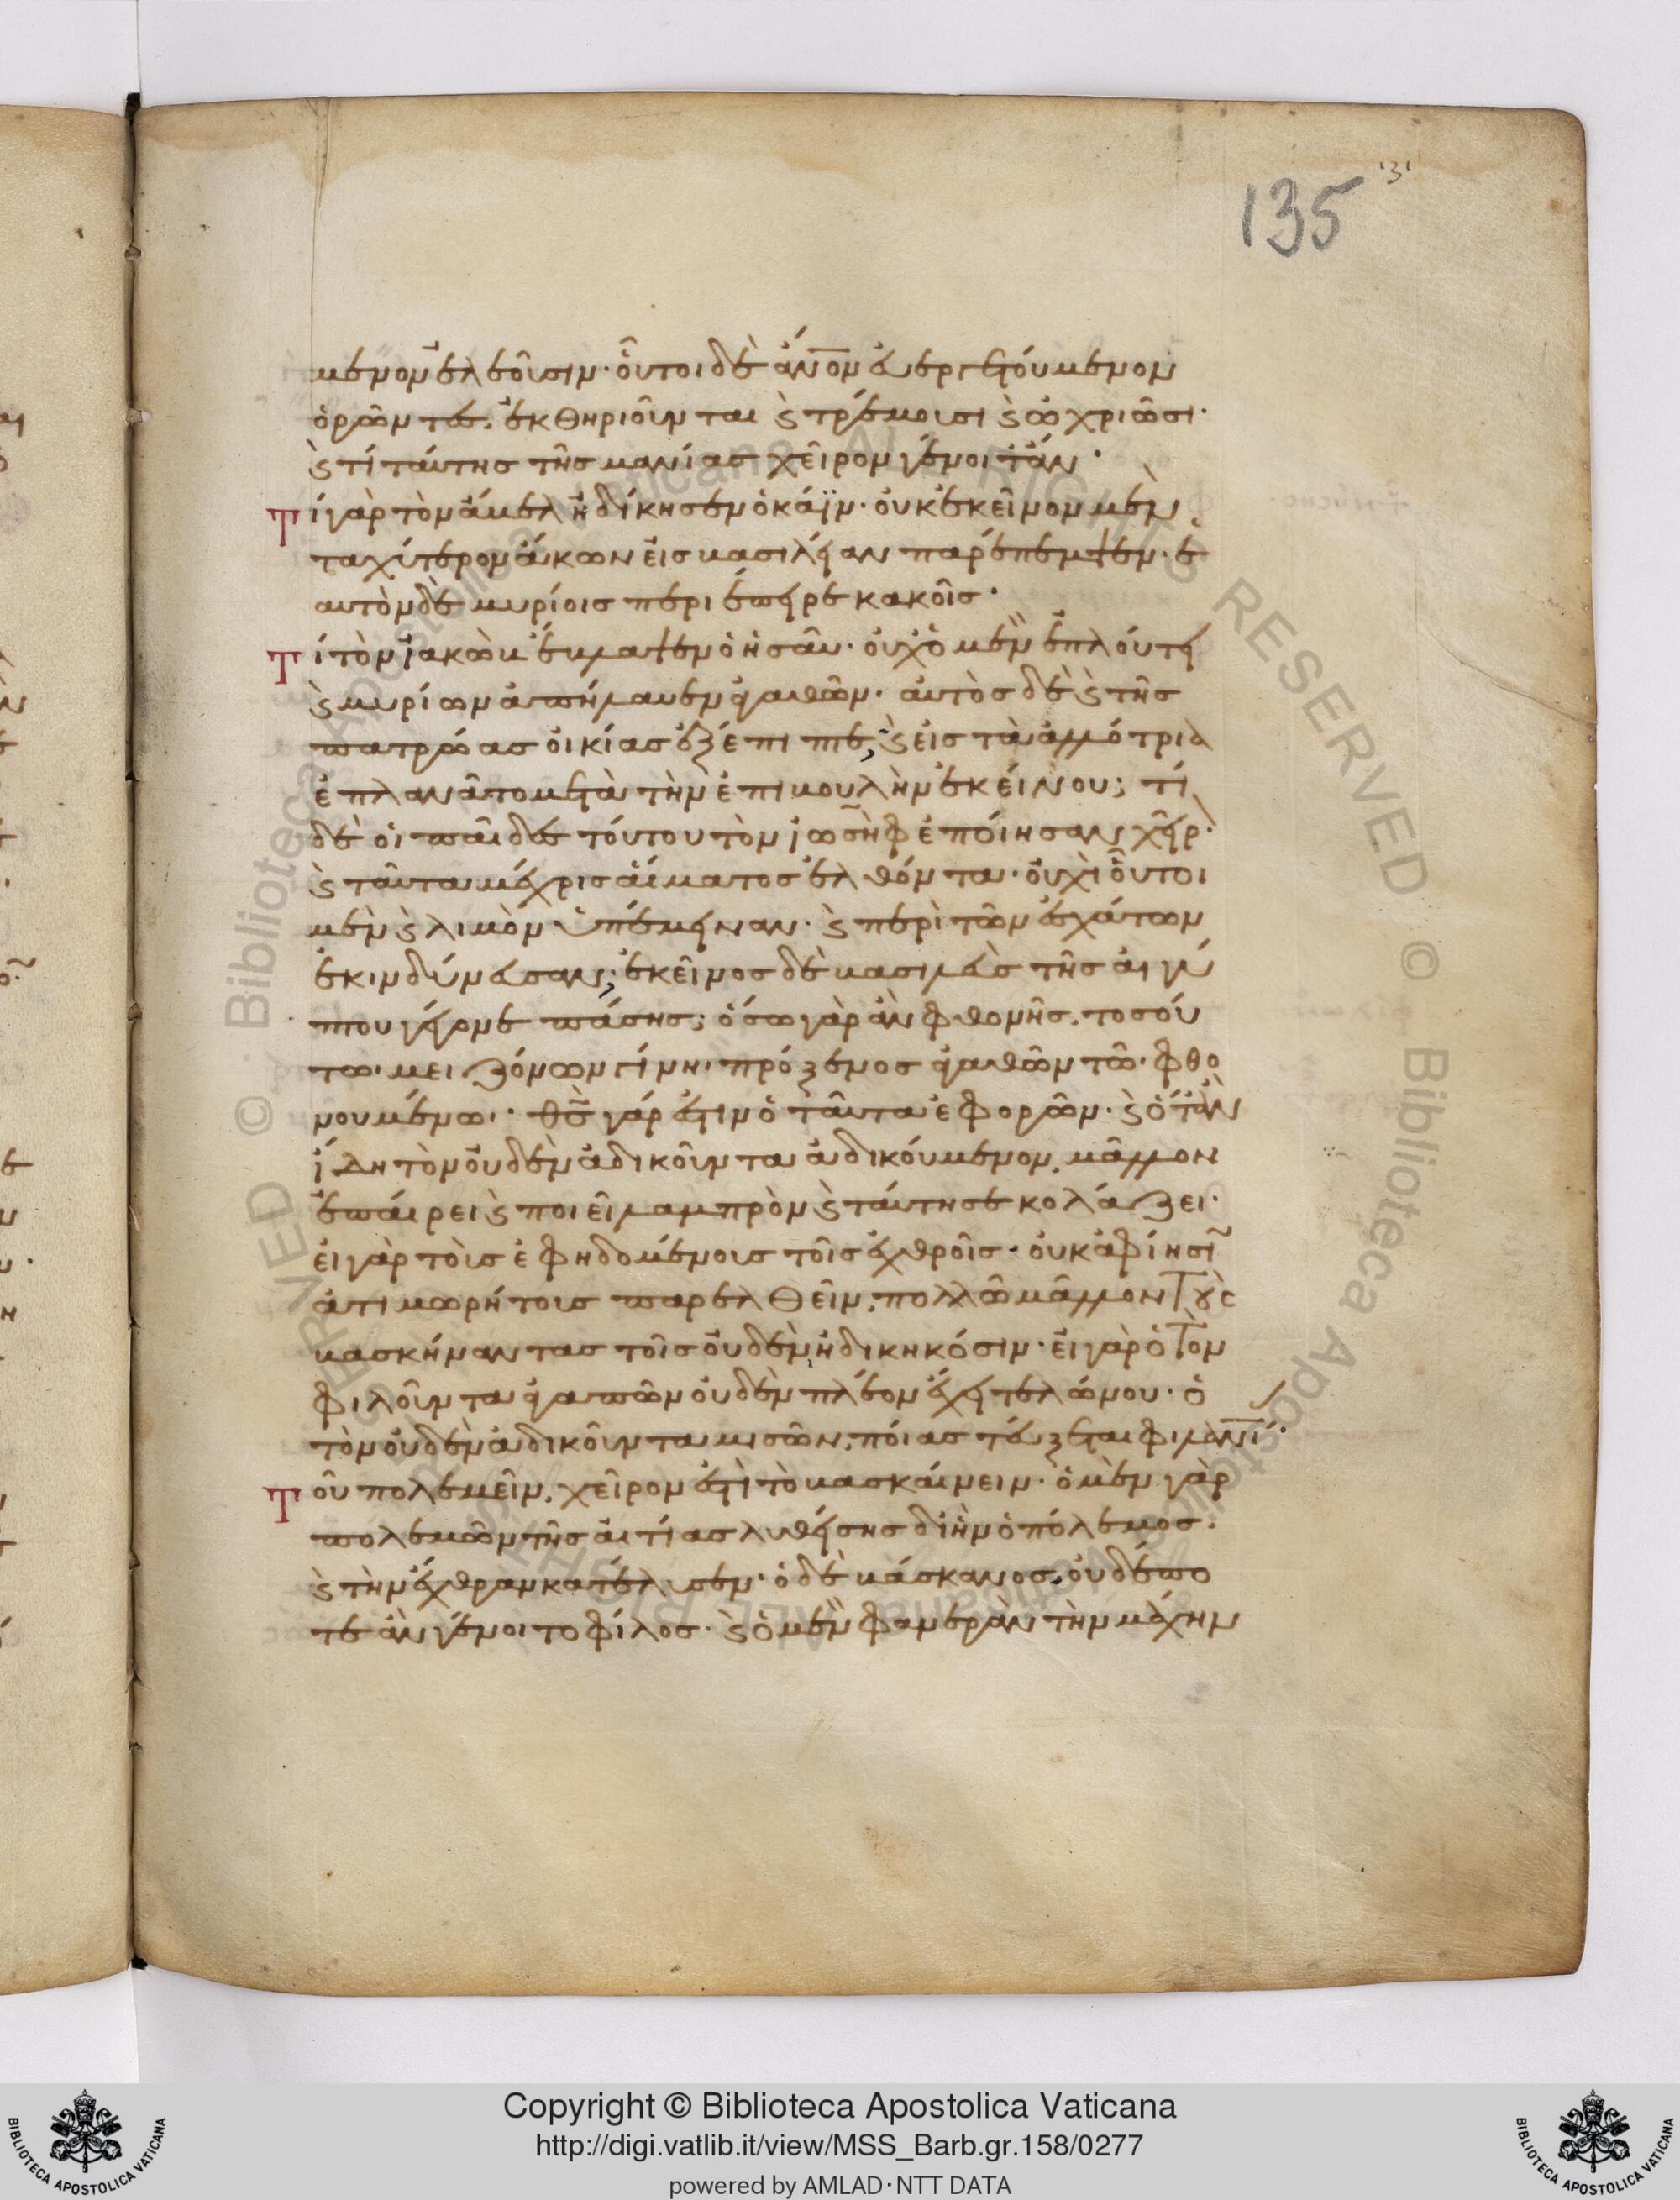 131
135
μενον ἐλεοῦσιν· οὗτοι δὲ ἄνον εὐεργετούμενον
ὁρῶντες, ἐκθηριοῦνται καὶ τρέμουσι καὶ ὠχριῶσι·
καὶ τί ταύτης τῆς μανίας χεῖρον γένοιτ' ἄν·
Τί γὰρ τὸν ἄβελ ἠδίκησεν ὁ κάϊν· οὐκ ἐκεῖνον μὲν
ταχύτερον ἄκων εἰς βασιλείαν παρέπεμψεν· ἑ
αυτὸν δὲ μυρίοις περιέπειρε κακοῖς·
Τί τὸν ἰακὼβ ἔβλαψεν ὁ ἠσαῦ· οὐχ ὁ μὲν ἐπλούτει
καὶ μυρίων ἀπήλαυεν ἀγαθῶν· αὐτὸς δὲ καὶ τῆς
πατρώας οἰκίας ἐξέπιπτε, καὶ εἰς τὰ ἀλλότρια
ἐπλανᾶτο μετὰ τὴν ἐπιβουλὴν ἐκείνου; τί
δὲ οἱ παῖδες τούτου τὸν ἰωσὴφ ἐποίησαν χεῖρ·
καὶ ταῦτα μέχρις αἵματος ἐλθόντα· οὐχὶ οὗτοι
μὲν καὶ λιμὸν ὑπέμειναν· καὶ περὶ τῶν ἐσχάτων
ἐκινδύνευσαν; ἐκεῖνος δὲ βασιλεὺς τῆς αἰγύ
πτου γέγονε πάσης; ὅσω γὰρ ἂν φθονῆς, τοσού
τω μειζόνων γίνη πρόξενος ἀγαθῶν τῶ φθο
νουμένωι· θς γάρ ἐστιν ὁ ταῦτα ἐφορῶν· καὶ ὅταν
ἴδη τὸν οὐδὲν ἀδικοῦντα ἀδικούμενον, μᾶλλον
ἐπαίρει καὶ ποιεῖ λαμπρὸν καὶ ταύτης ἑ κολάζει·
εἰ γὰρ τοῖς ἐφηδομένους τοῖς ἐχθροῖς οὐκ ἀφίησι
ἀτιμωρήτους παρελθεῖν, πολλῶ μᾶλλον τοὺς
βασκήναντας τοῖς οὐδὲν ἠδικηκόσιν· εἰ γὰρ ὁ τὸν
φιλοῦντα ἀγαπῶν οὐδὲν πλέον ἔχει τελώνου· ὁ
τὸν οὐδὲν ἀδικοῦντα μισῶν, ποίας τεύξεται φιλανί·
Τοῦ πολεμεῖν, χεῖρον ἐστὶ τὸ βασκαίνειν· ὁ μὲν γὰρ
πολεμῶν τῆς αἰτίας λυθείσης δι' ἣν ὁ πόλεμος.
καὶ τὴν ἔχθραν κατέλυσεν· ὁ δὲ βάσκανος, οὐδέπο
τε ἂν γένοιτο φίλος· καὶ ὁ μὲν φανερὰν τὴν μάχην
Copyright © Biblioteca Apostolica Vaticana
http://digi.vatlib.it/view/MSS_Barb.gr.158/0277
powered by AMLAD·NTT DATA